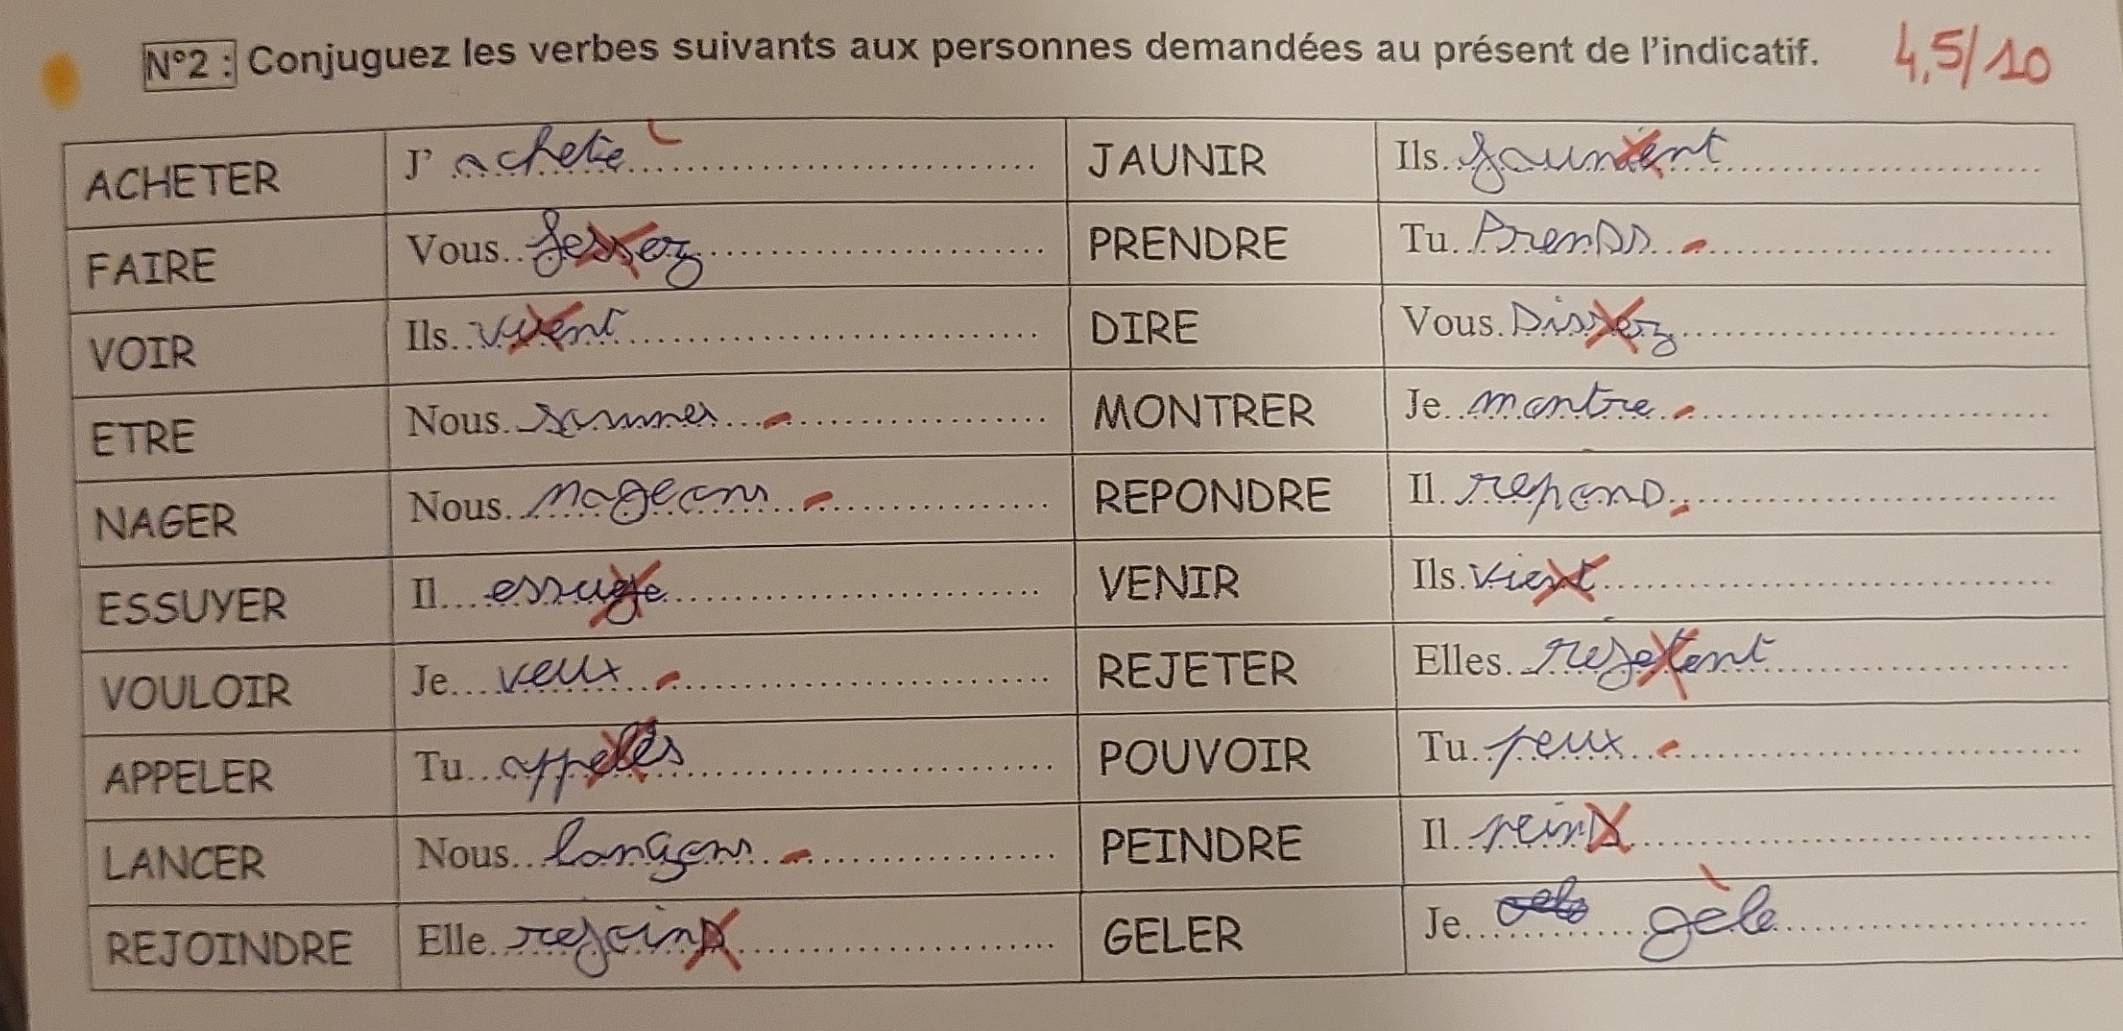 N°2 : Conjuguez les verbes suivants aux personnes demandées au présent de l'indicatif. 4,5/10
ACHETER J' achete JAUNIR Ils jaunient
FAIRE Vous fessez PRENDRE Tu Prends
VOIR Ils vient DIRE Vous Dissez
ETRE Nous sommes MONTRER Je montre
NAGER Nous nageons REPONDRE Il repond
ESSUYER Il essuye VENIR Ils vient
VOULOIR Je veux REJETER Elles rejetent
APPELER Tu appeles POUVOIR Tu peux
LANCER Nous lançons PEINDRE Il peind
REJOINDRE Elle rejoind GELER Je gèle